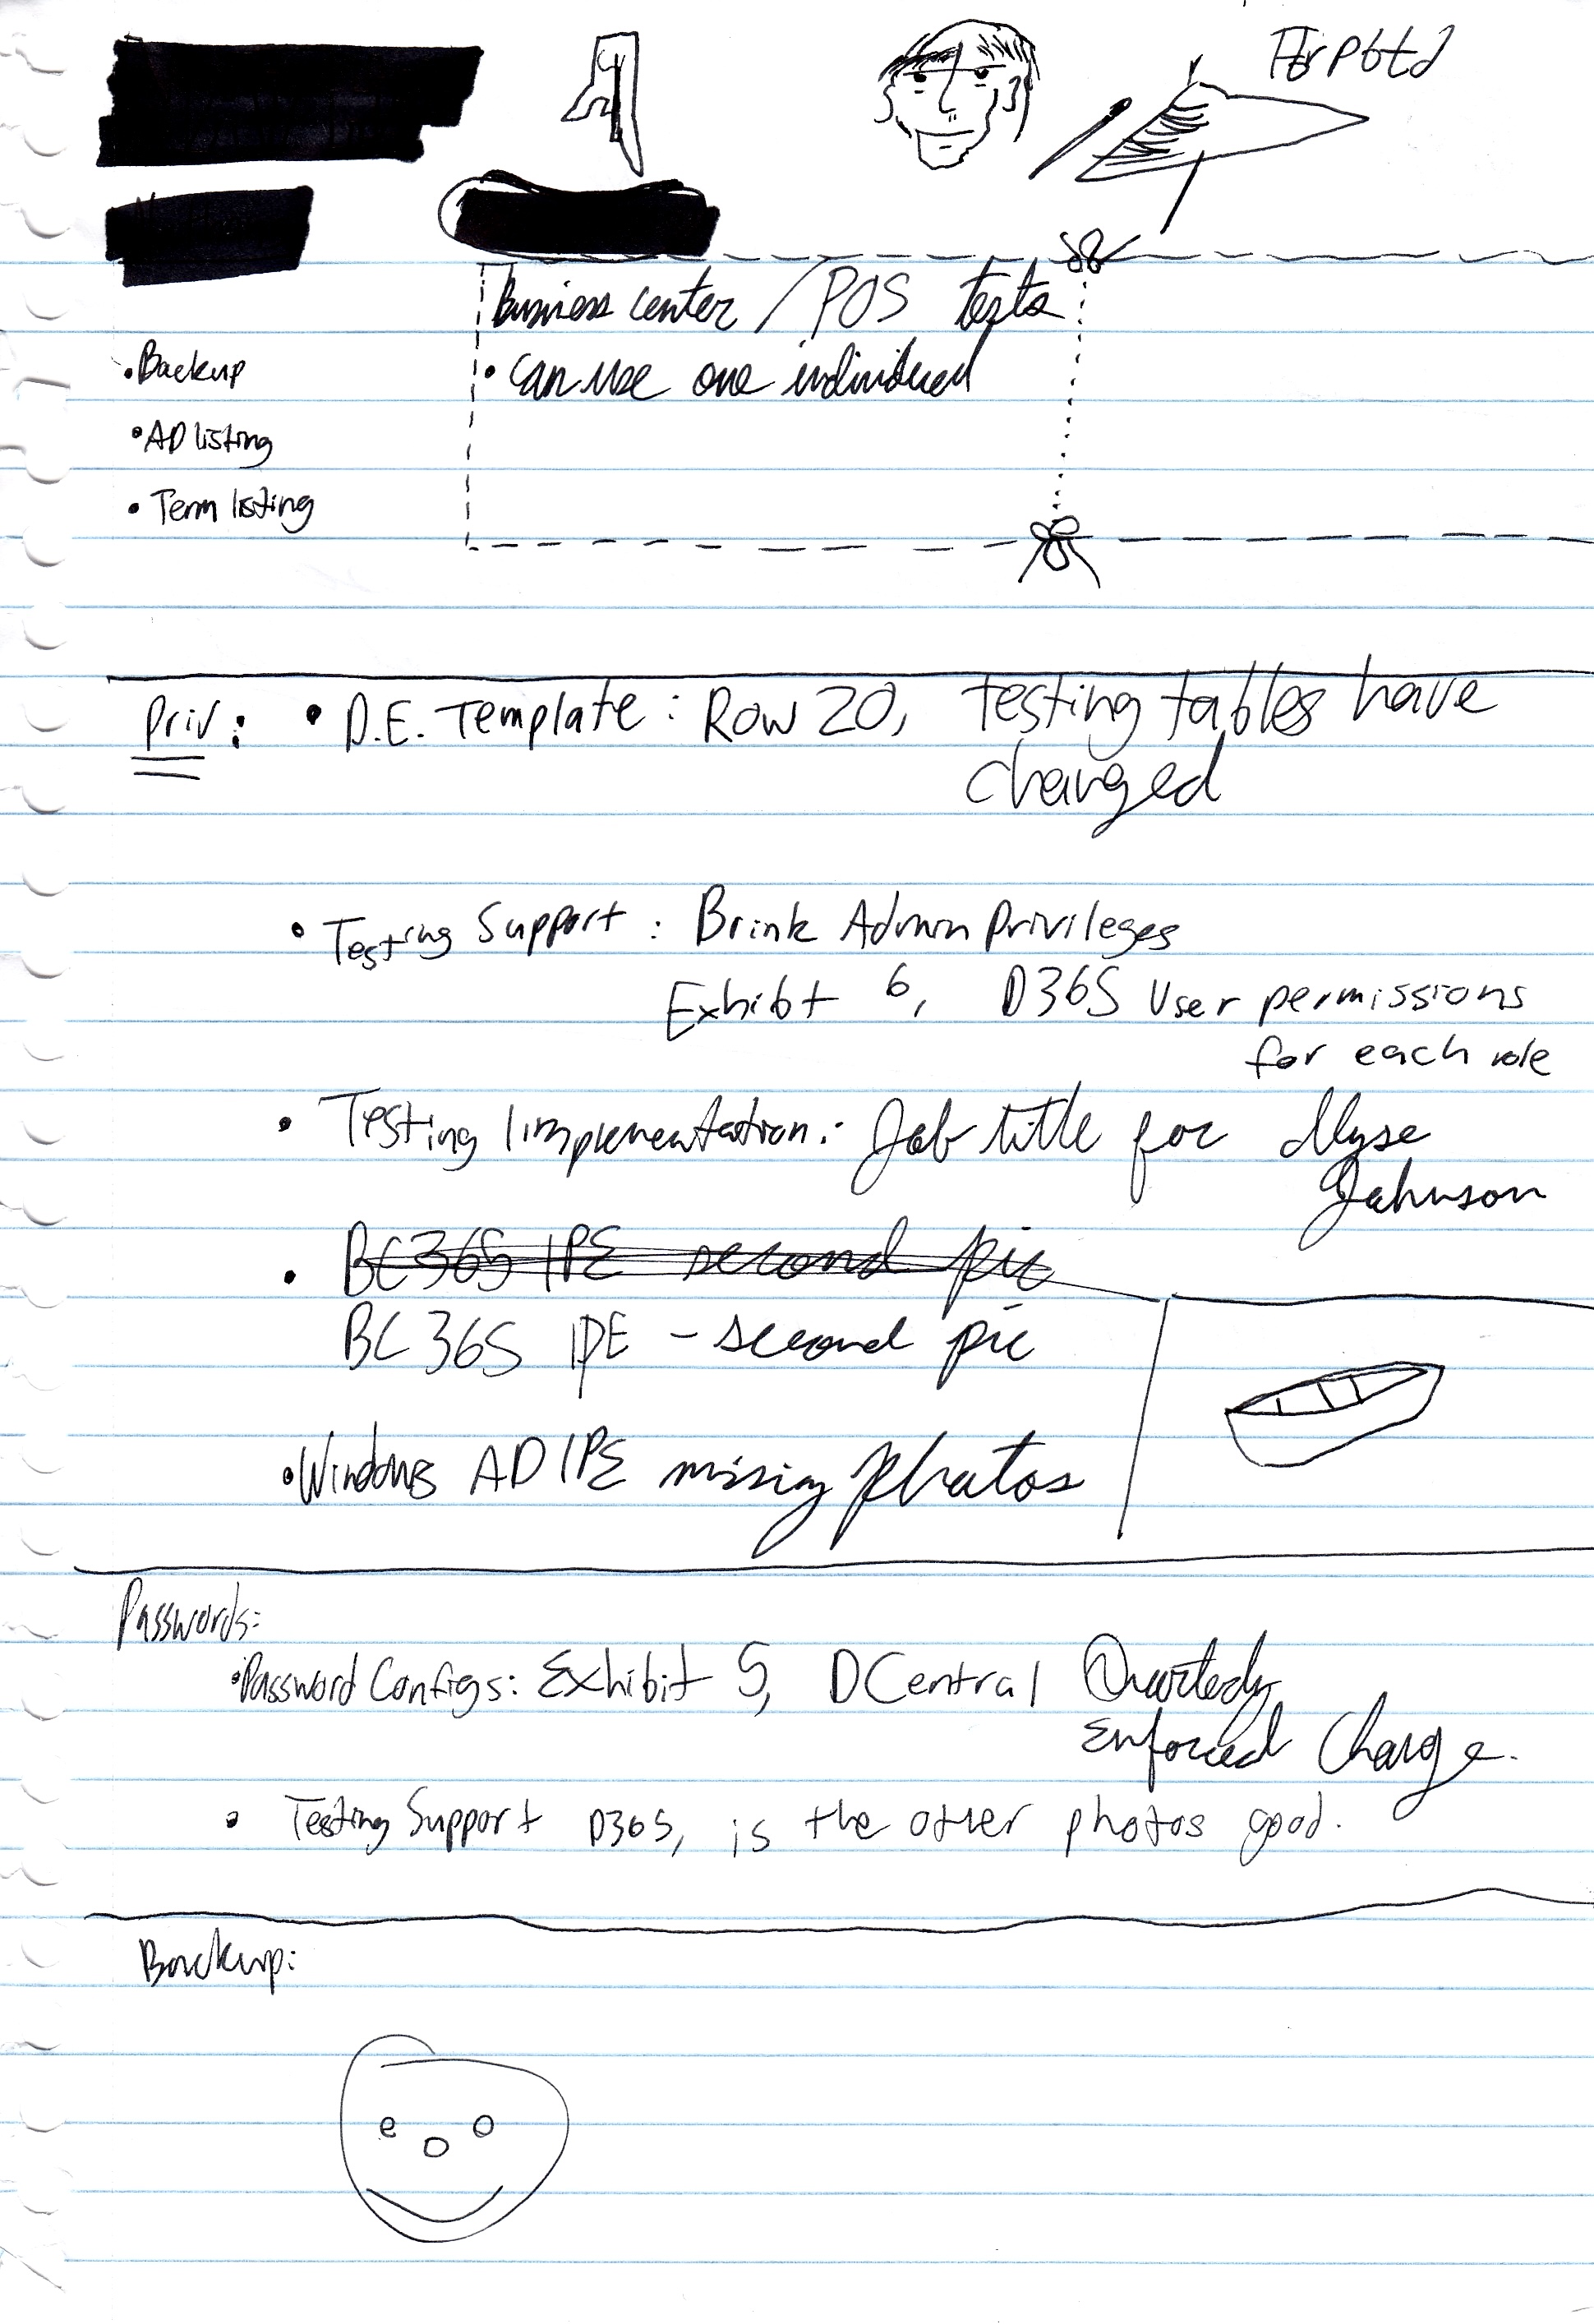 Business center / POS tests
• Backup
• can use one individual
• AD listing
• Term listing
Priv: • D.E. Template: Row 20, testing tables have
changed
• Testing Support: Brink Admin Privileges
Exhibt 6, D365 User permissions
for each role
• Testing Implementation: Job title for Alyse
Johnson
• BC365 IPE second pic
BC 365 IPE - second pic
• Windows AD IPE missing photos
Passwords:
• Password Configs: Exhibit 5, DCentral Quarterly
Enforced Change.
• Testing Support D365, is the other photos good.
Backup: